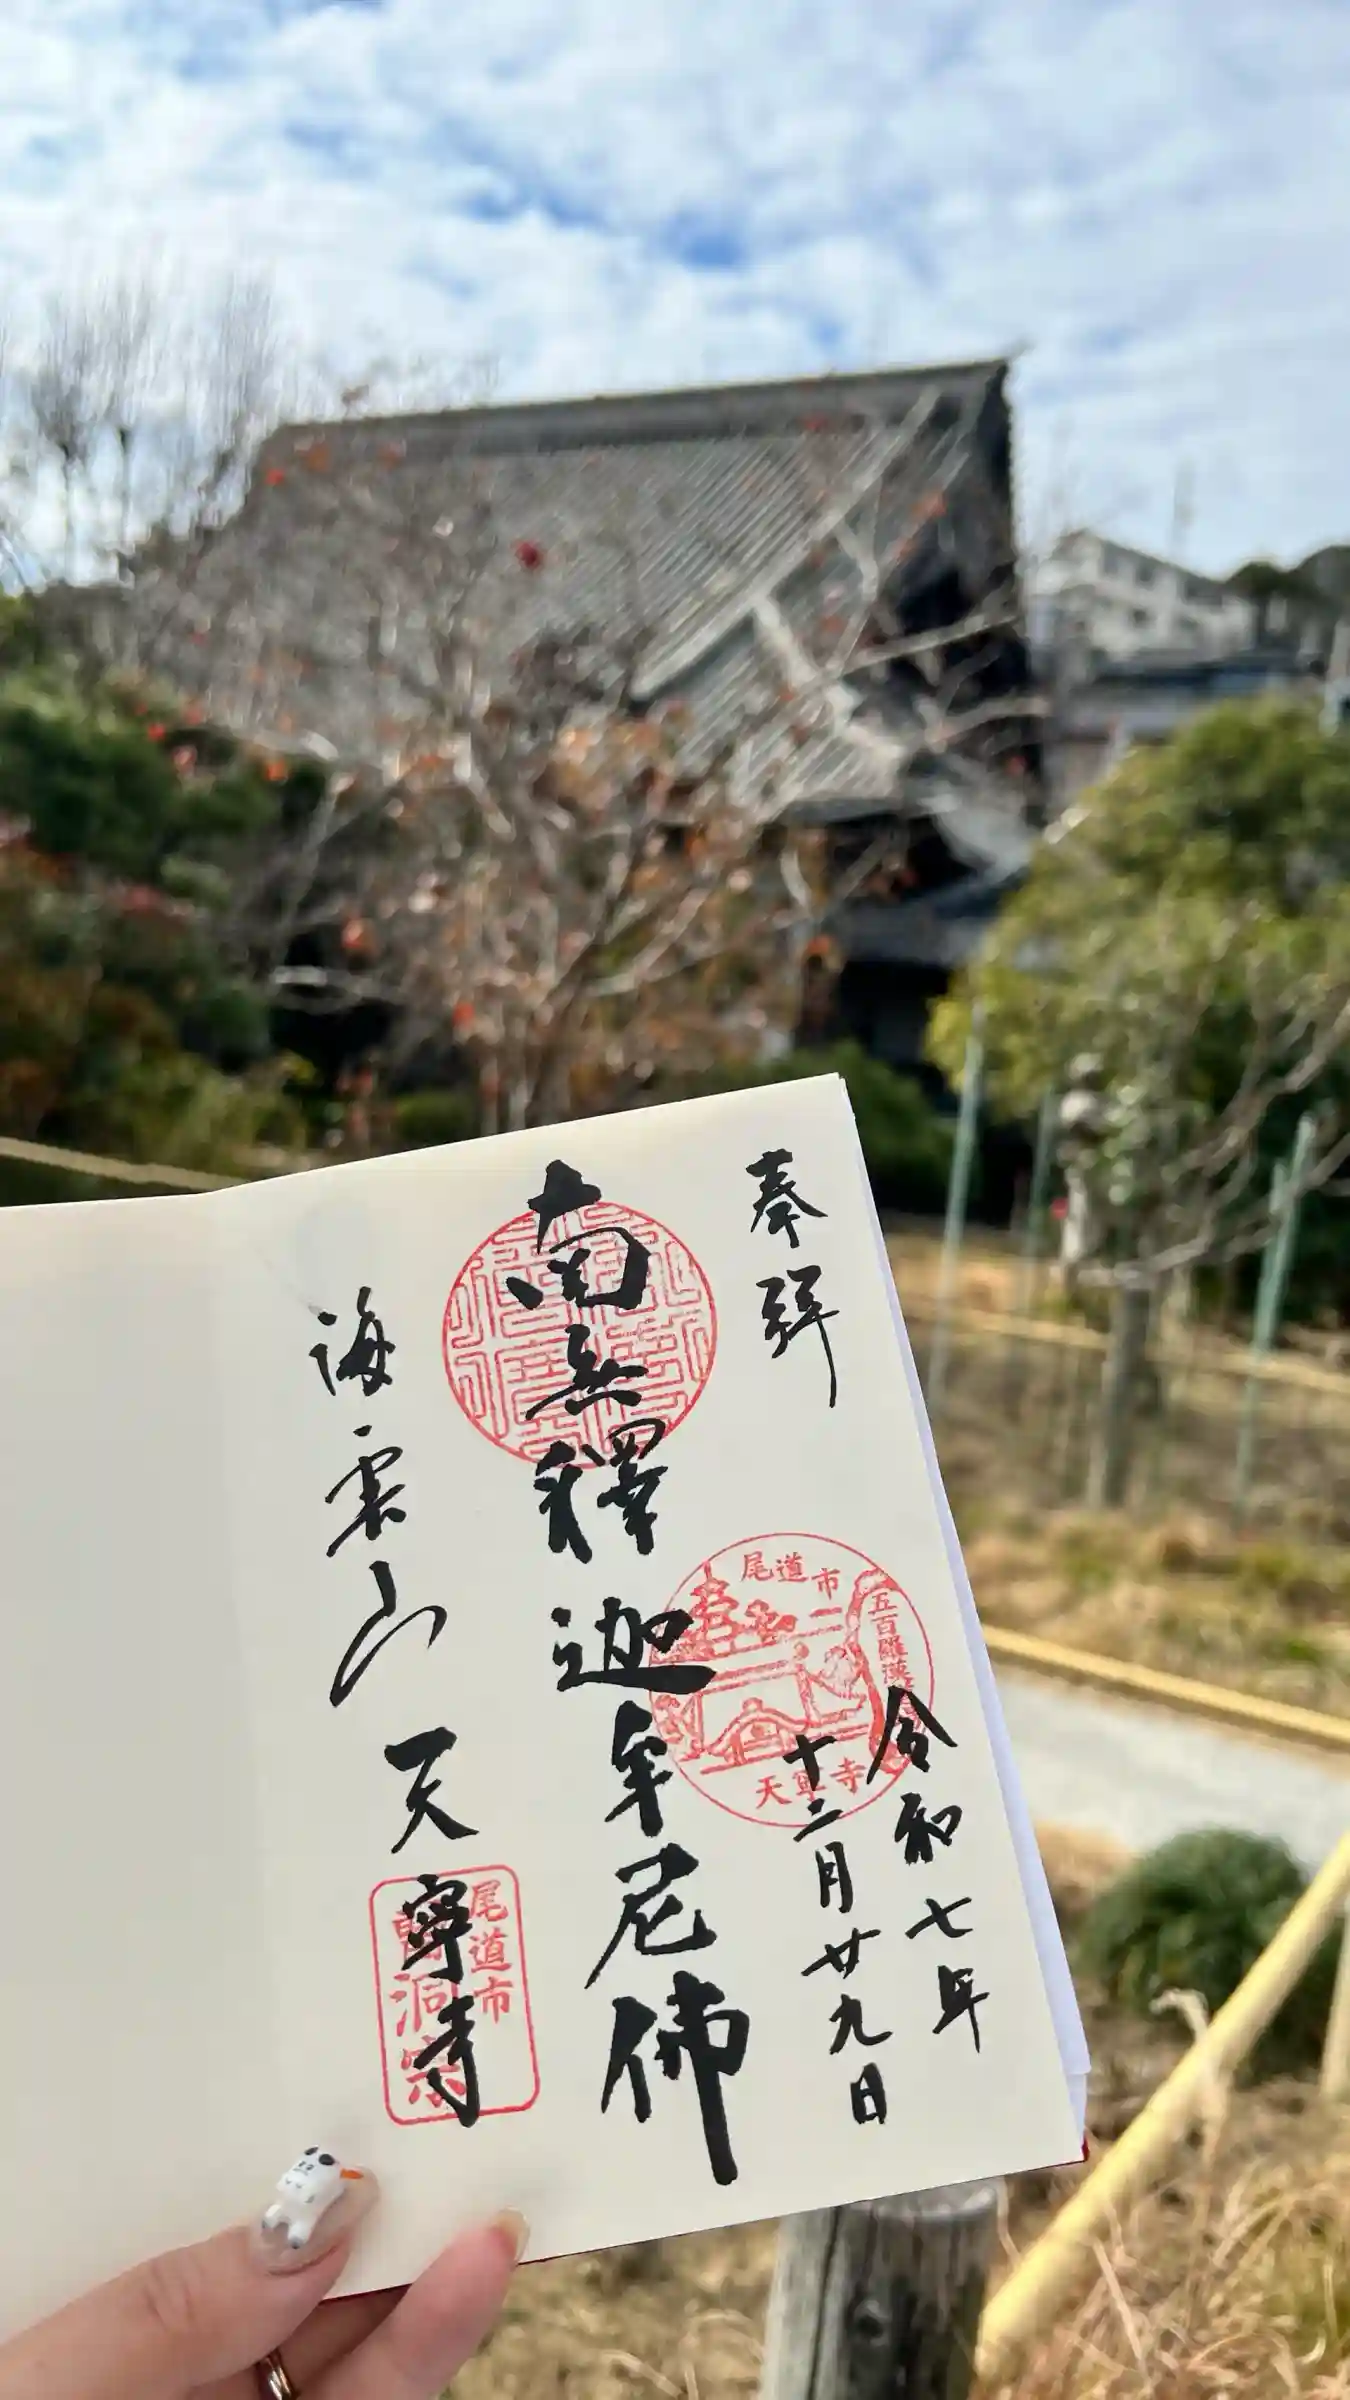 奉拝
尾道市
五百羅漢
天寧寺
令和七年
十二月廿九日
南無釋迦牟尼佛
海雲山 天寧寺
尾道市
曹洞宗